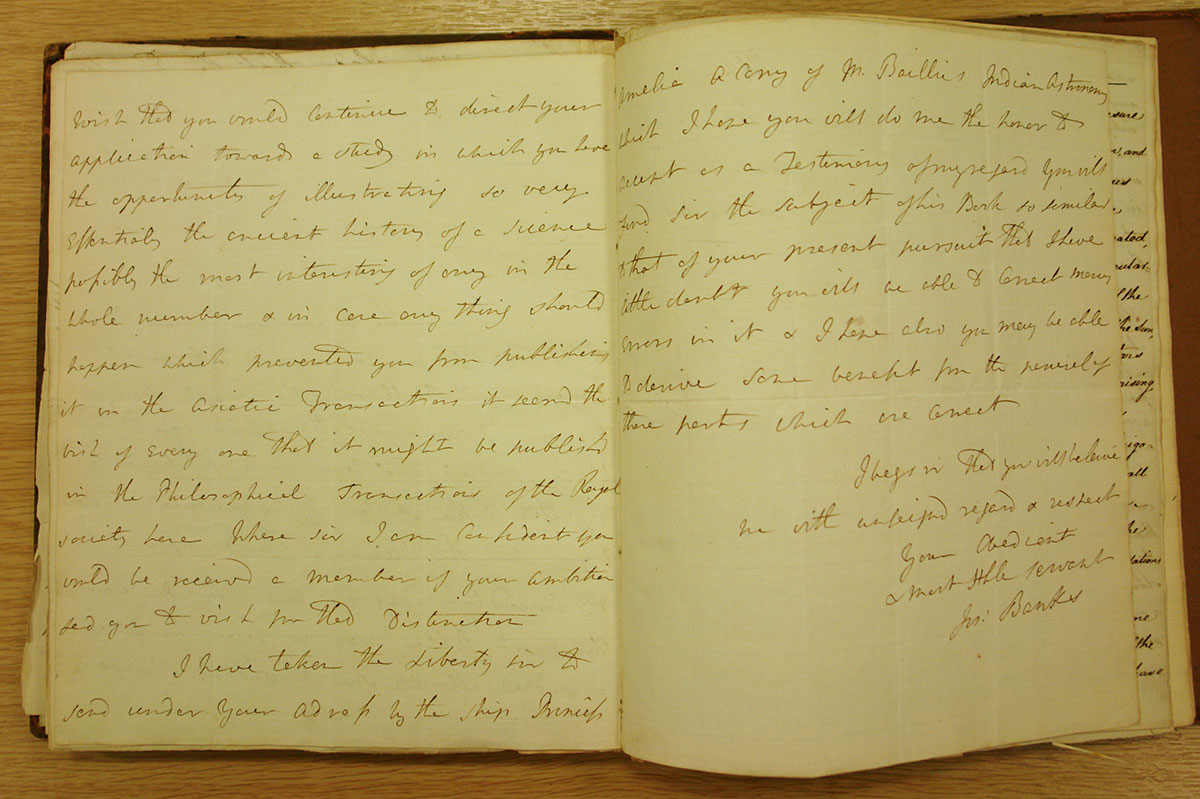 wish that you would Continue to direct your
application towards a study in which you have
the opportunity of illustrating so very
Essentialy the ancient history of a Science
possibly the most interesting of any in the
whole number & in case any thing should
happen which prevented you from publishing
it in the Asiatic Transactions it seemd the
wish of Every one that it might be publishd
in the Philosophical Transactions of the Royal
society here Where sir I am Confident you
would be received a member if your ambition
led you to wish for that Distinction
I have taken the Liberty sir to
send under your adress by the ship Princess
amelia a Copy of Mr Baillies Indian Astronomy
which I hope you will do me the honor to
accept as a Testimony of my regard you will
find sir the subject of his Book so similar
to that of your present pursuit that I have
little doubt you will be able to Correct many
Errors in it & I hope also you may be able
to derive some benefit from the perusal of
those parts which are Correct
I beg sir that you will beleive
me with unfeignd regard & respect
Your Obedient
& most Hble servant
Jos: Banks
sure
and
ated
the
the Sun,
rising,
all
the
ations
the
have